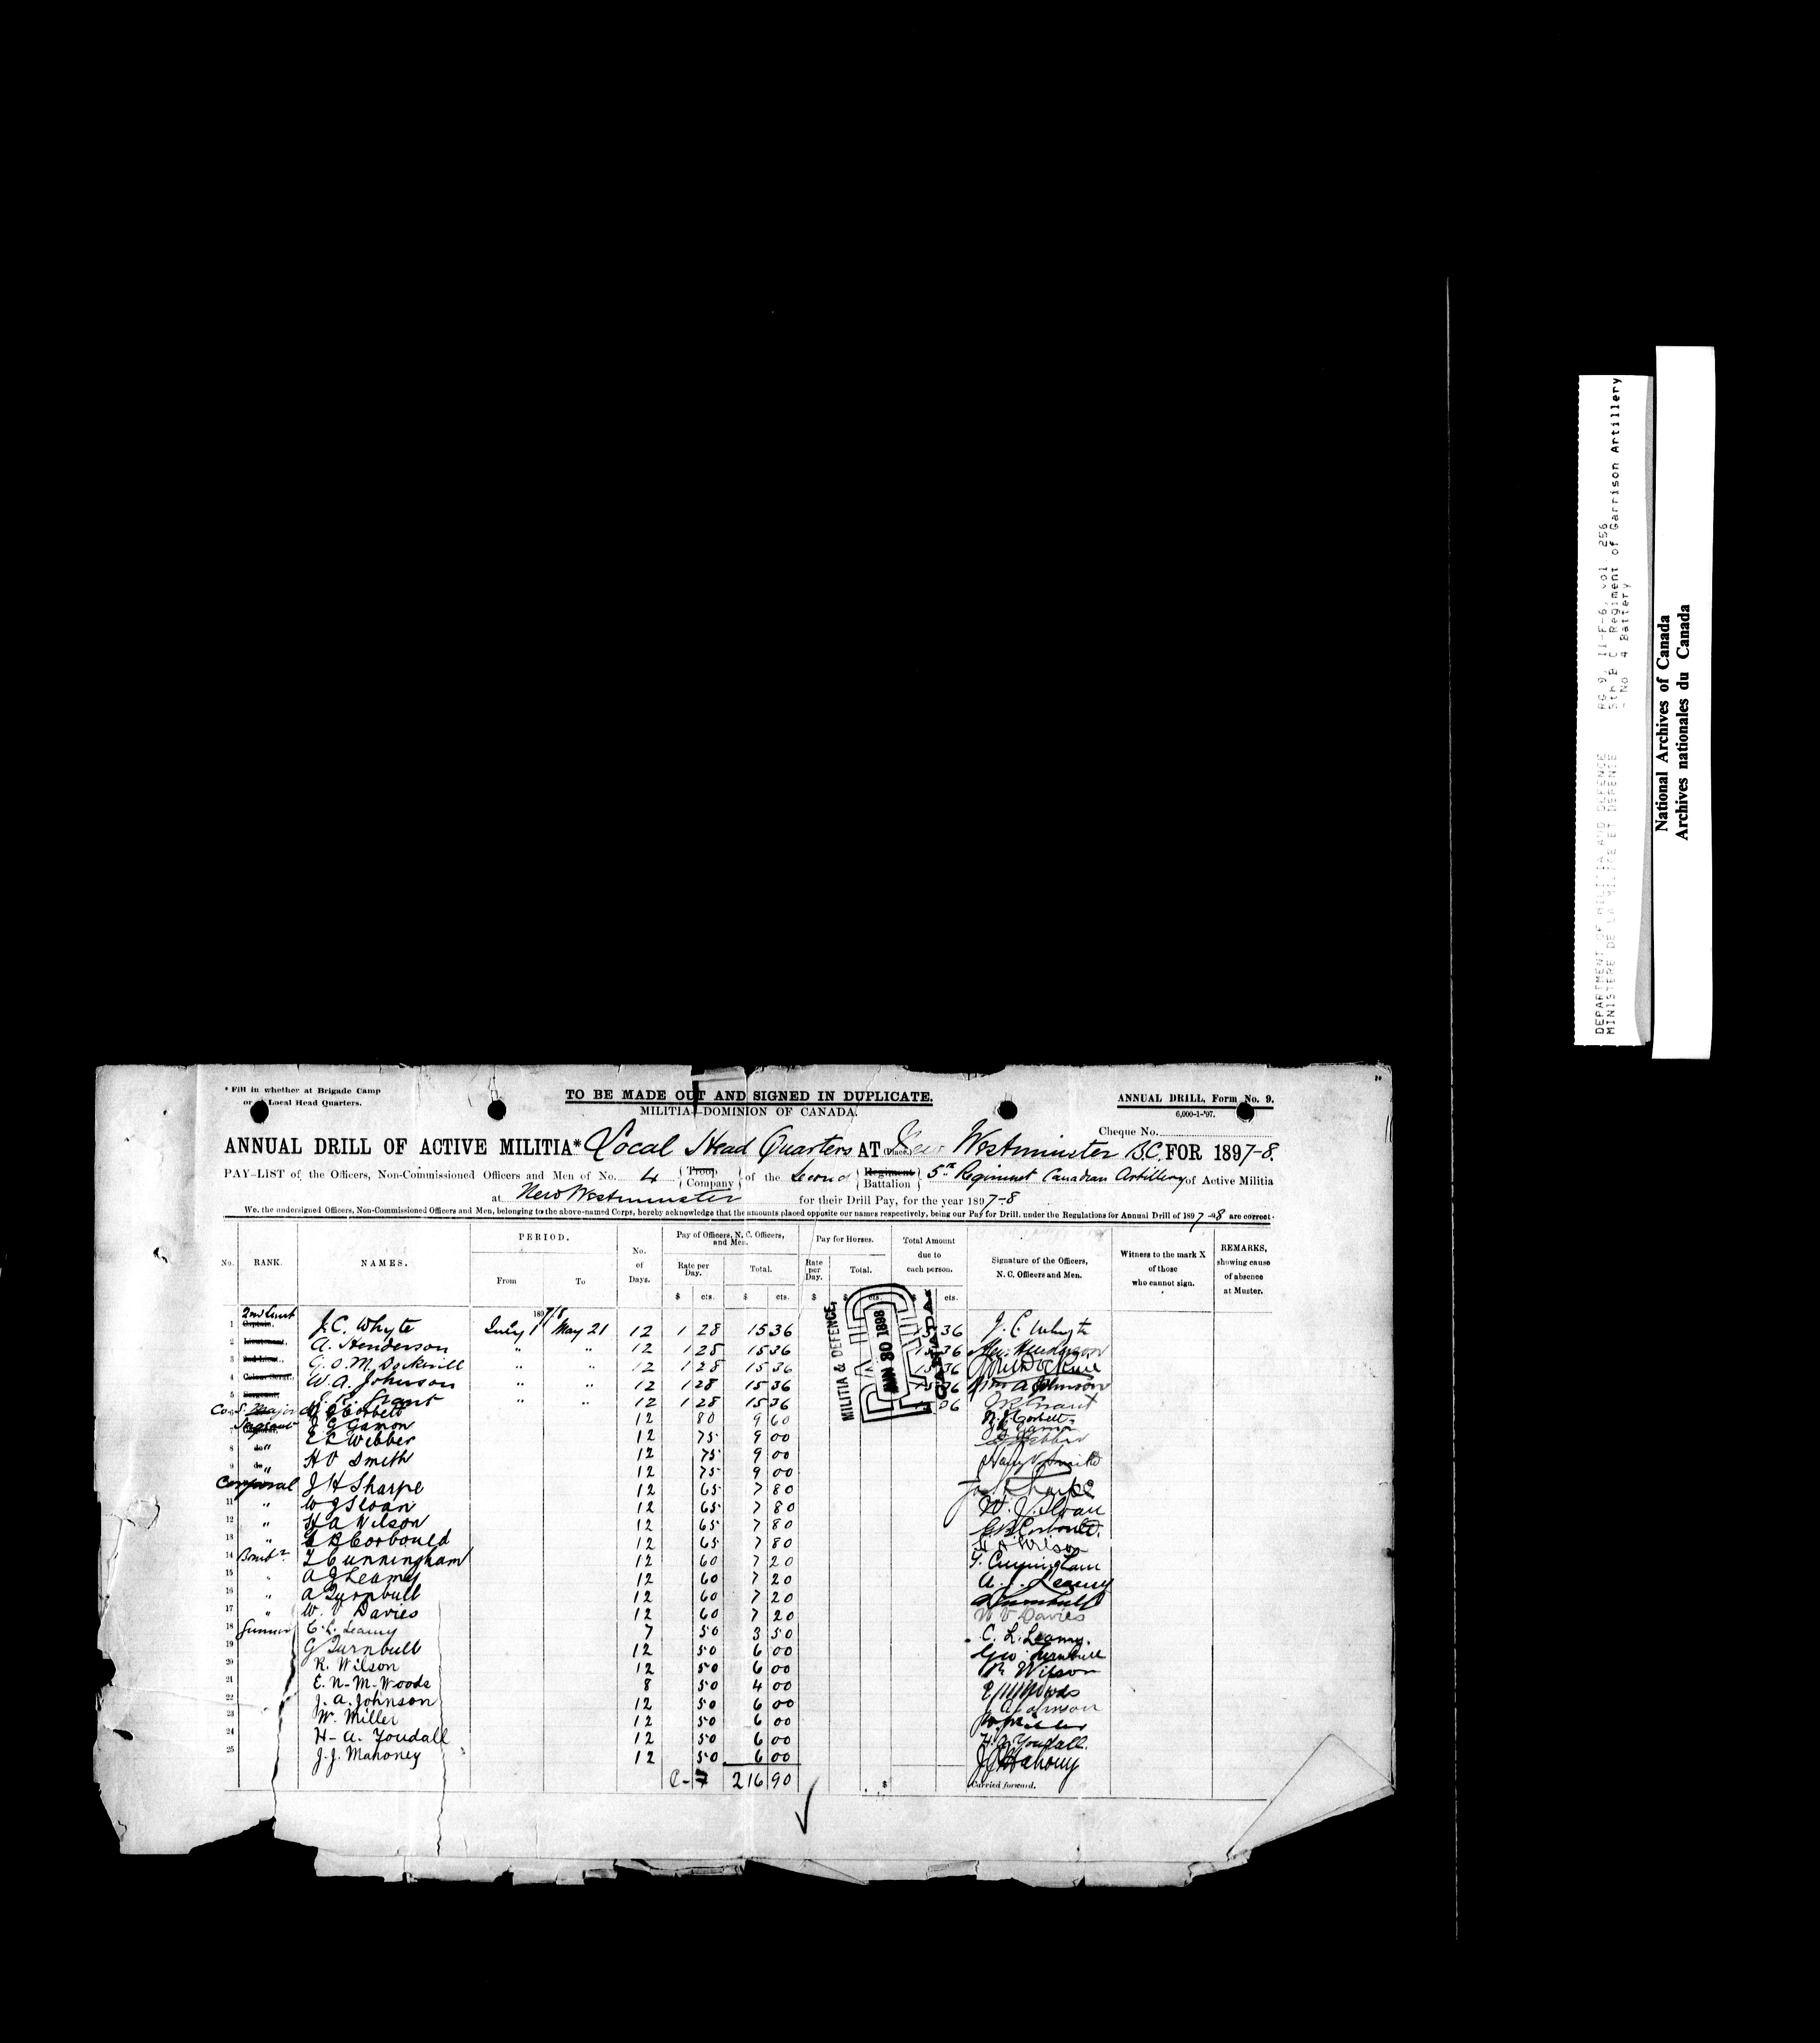 * Fill in whether at Brigade Camp
or Local Head Quarters.
TO BE MADE OUT AND SIGNED IN DUPLICATE.
MILITIA—DOMINION OF CANADA.
ANNUAL DRILL, Form No. 9.
6,000-1-'97.
Cheque No.
ANNUAL DRILL OF ACTIVE MILITIA* Local Head Quarters AT (Place) New Westminster B.C. FOR 1897-8.
PAY-LIST of the Officers, Non-Commissioned Officers and Men of No. 4 Troop Company of the Second Regiment Battalion 5th Regiment Canadian Artillery of Active Militia
at New Westminster for their Drill Pay, for the year 1897-8
We, the undersigned Officers, Non-Commissioned Officers and Men, belonging to the above-named Corps, hereby acknowledge that the amounts placed opposite our names respectively, being our Pay for Drill, under the Regulations for Annual Drill of 1897-98 are correct.
No. RANK. NAMES. PERIOD. From To No. of Days. Pay of Officers, N. C. Officers, and Men. Rate per Day. Total. Pay for Horses. Rate per Day. Total. Total Amount due to each person. Signature of the Officers, N. C. Officers and Men. Witness to the mark X of those who cannot sign. REMARKS, showing cause of absence at Muster.
$ cts. $ cts. $ $ cts. $ cts.
1897/8
1 2nd Lieut Captain. J. C. Whyte July 1 May 21 12 1 28 15 36 15 36 J. C. Whyte
2 Lieutenant. A. Henderson " " 12 1 28 15 36 15 36 Alex. Henderson
3 2nd Lieut. G. O. M. Dockrill " " 12 1 28 15 36 15 36
4 W. A. Johnson " " 12 1 28 15 36 15 36 Wm A Johnson
5 Sergeant, E. R. Grant " " 12 1 28 15 36 36 Grant
Co. S. Major Corbett 12 80 9 60 Corbett
Sergeant J G Gamon 12 75 9 00
8 do " E L Webber 12 75 9 00 Webber
9 do " H V Smith 12 75 9 00 Harry V Smith
Corporal J H Sharpe 12 65 7 80 Sharpe
11 " W J Sloan 12 65 7 80 W. J. Sloan
12 " H A Wilson 12 65 7 80 G. B. Corbould.
13 " G B Corbould 12 65 7 80 H A Wilson
14 Bombr. T Cunningham 12 60 7 20 T. Cunningham
15 " A J Leamy 12 60 7 20 A. J. Leamy
16 " A Turnbull 12 60 7 20 A Turnbull
17 " W. V Davies 12 60 7 20 W V Davies
18 Gunner C. L. Leamy 7 50 3 50 C. L. Leamy.
19 G Turnbull 12 50 6 00 Geo. Turnbull
20 R. Wilson 12 50 6 00 R. Wilson
21 E. N-M-Woods 8 50 4 00 Woods
22 J. A. Johnson 12 50 6 00 J A Johnson
23 W. Miller 12 50 6 00 W. Miller
24 H-A. Youdall 12 50 6 00 H. A. Youdall.
25 J. J. Mahoney 12 50 6 00 J J Mahony
216 90 $ Carried forward.
MILITIA & DEFENCE,
PAID
JUN 30 1898
CANADA
DEPARTMENT OF MILITIA AND DEFENCE
MINISTERE DE LA MILICE ET DEFENSE
RG 9, II-F-6, vol. 256
5th B C Regiment of Garrison Artillery
- No 4 Battery
National Archives of Canada
Archives nationales du Canada